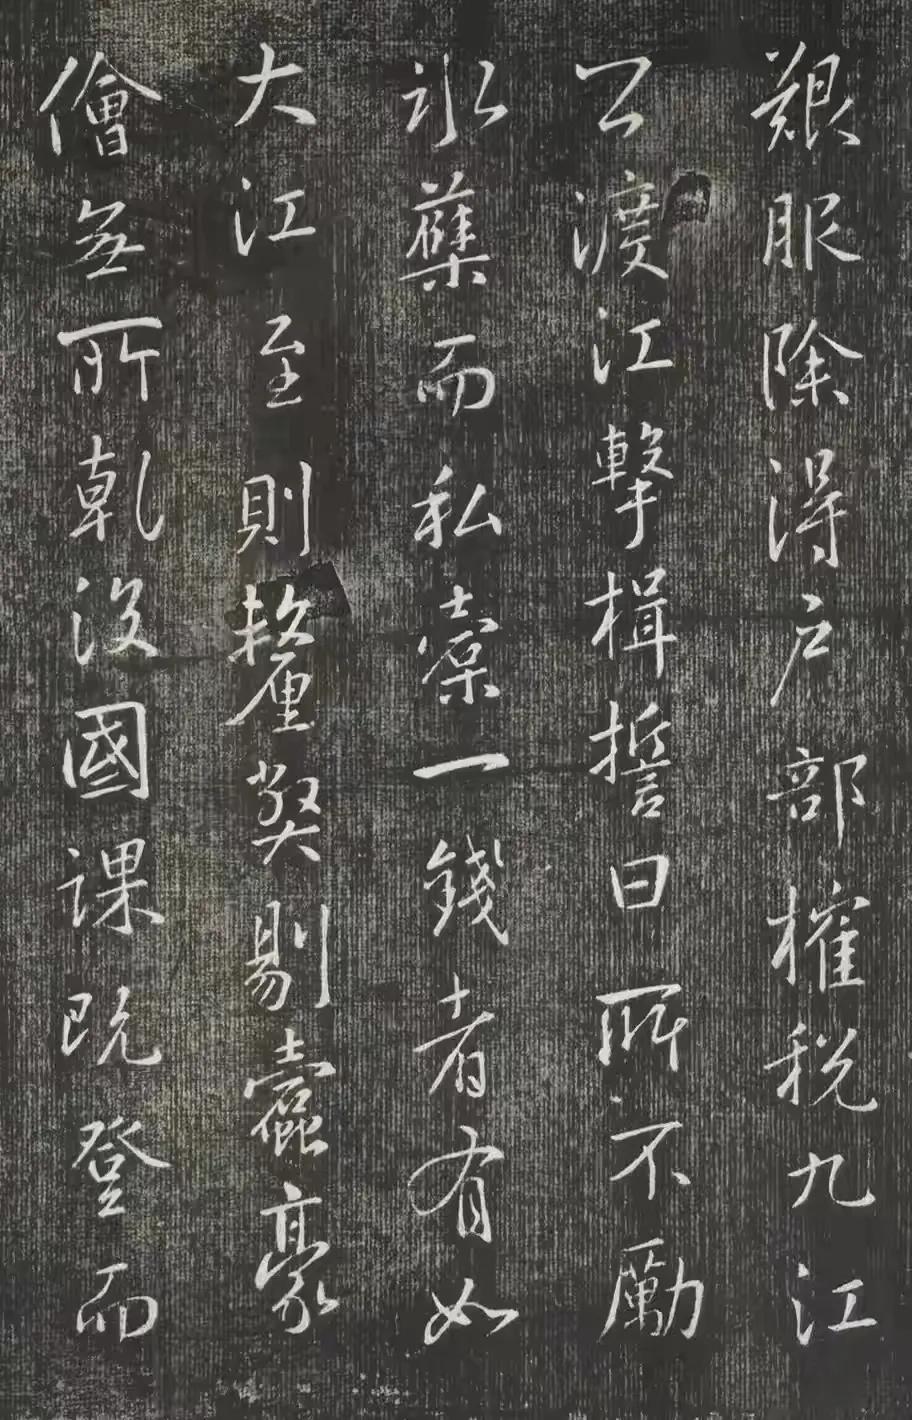 艱服除得户部榷稅九江
公渡江擊楫誓曰所不勵
冰蘗而私橐一錢者有如
大江至則釐獘剔蠹豪
儈無所乾没國課既登而